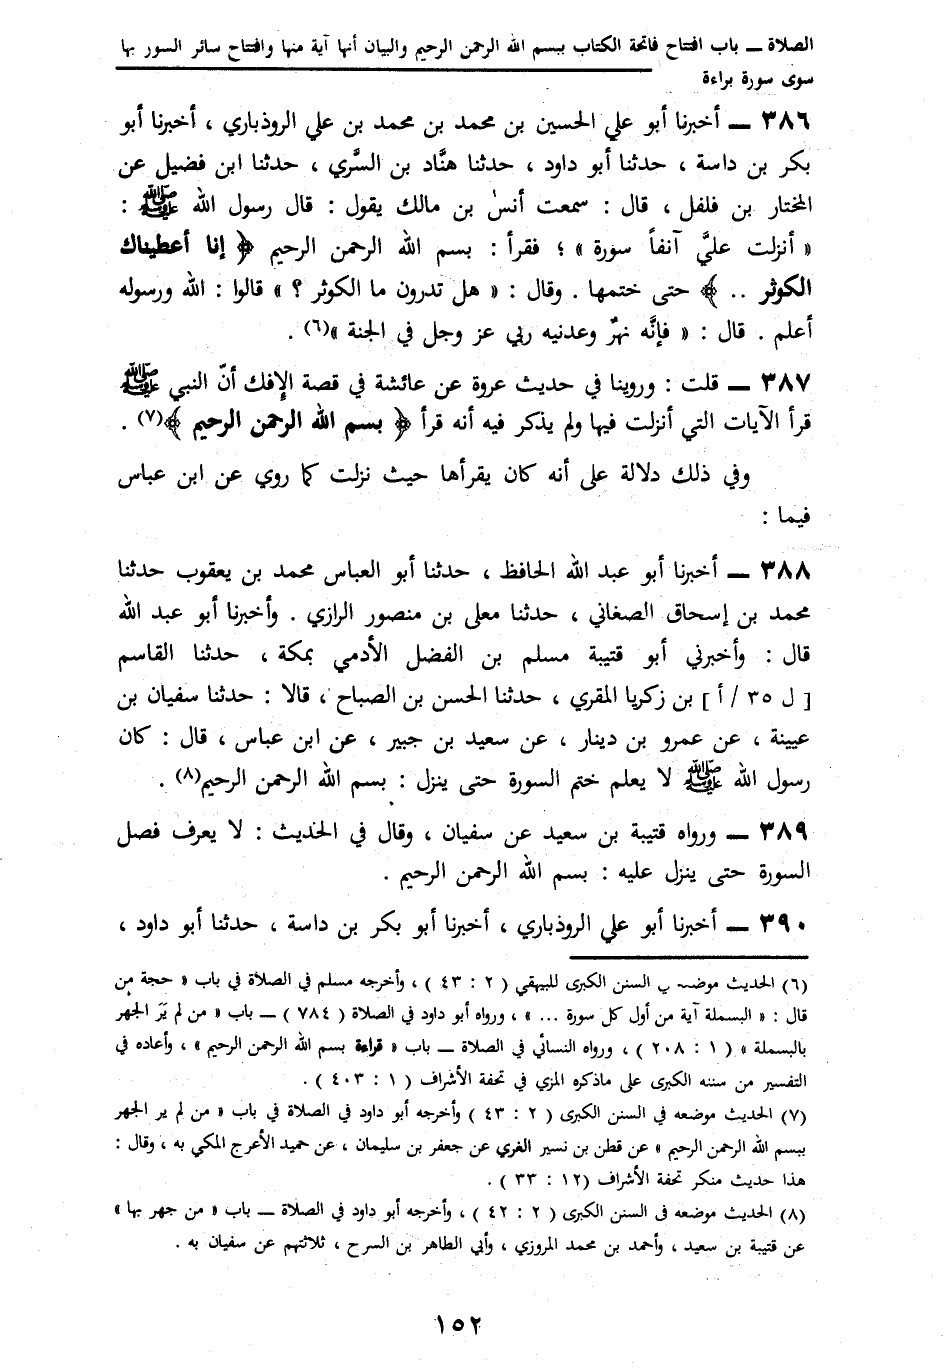 الصلاة ــ باب افتتاح فاتحة الكتاب ببسم الله الرحمن الرحيم والبيان أنها آية منها وافتتاح سائر السور بها
سوى سورة براءة
٣٨٦ ــ أخبرنا أبو علي الحسين بن محمد بن محمد بن علي الروذباري ، أخبرنا أبو
بكر بن داسة ، حدثنا أبو داود ، حدثنا هنَّاد بن السَّري ، حدثنا ابن فضيل عن
المختار بن فلفل ، قال : سمعت أنس بن مالك يقول : قال رسول الله ﷺ :
« أنزلت عليَّ آنفاً سورة » ؛ فقرأ : بسم الله الرحمن الرحيم ﴿ إنا أعطيناك
الكوثر .. ﴾ حتى ختمها . وقال : « هل تدرون ما الكوثر ؟ » قالوا : الله ورسوله
أعلم . قال : « فإنَّه نهرٌ وعدنيه ربي عز وجل في الجنة »(٦) .
٣٨٧ ــ قلت : وروينا في حديث عروة عن عائشة في قصة الإفك أنّ النبي ﷺ
قرأ الآيات التي أنزلت فيها ولم يذكر فيه أنه قرأ ﴿ بسم الله الرحمن الرحيم ﴾(٧) .
وفي ذلك دلالة على أنه كان يقرأها حيث نزلت كما روي عن ابن عباس
فيما :
٣٨٨ ــ أخبرنا أبو عبد الله الحافظ ، حدثنا أبو العباس محمد بن يعقوب حدثنا
محمد بن إسحاق الصغاني ، حدثنا معلى بن منصور الرازي . وأخبرنا أبو عبد الله
قال : وأخبرني أبو قتيبة مسلم بن الفضل الأدمي بمكة ، حدثنا القاسم
[ ل ٣٥ / أ ] بن زكريا المقري ، حدثنا الحسن بن الصباح ، قالا : حدثنا سفيان بن
عيينة ، عن عمرو بن دينار ، عن سعيد بن جبير ، عن ابن عباس ، قال : كان
رسول الله ﷺ لا يعلم ختم السورة حتى ينزل : بسم الله الرحمن الرحيم(٨) .
٣٨٩ ــ ورواه قتيبة بن سعيد عن سفيان ، وقال في الحديث : لا يعرف فصل
السورة حتى ينزل عليه : بسم الله الرحمن الرحيم .
٣٩٠ ــ أخبرنا أبو علي الروذباري ، أخبرنا أبو بكر بن داسة ، حدثنا أبو داود ،
(٦) الحديث في السنن الكبرى للبيهقي ( ٢ : ٤٣ ) ، وأخرجه مسلم في الصلاة في باب « حجة من
قال : « البسملة آية من أول كل سورة ... » ، ورواه أبو داود في الصلاة ( ٧٨٤ ) ــ باب « من لم يَرَ الجهر
بالبسملة » ( ١ : ٢٠٨ ) ، ورواه النسائي في الصلاة ــ باب « قراءة بسم الله الرحمن الرحيم » ، وأعاده في
التفسير من سننه الكبرى على ماذكره المزي في تحفة الأشراف ( ١ : ٤٠٣ ) .
(٧) الحديث موضعه في السنن الكبرى ( ٢ : ٤٣ ) وأخرجه أبو داود في الصلاة في باب « من لم ير الجهر
ببسم الله الرحمن الرحيم » عن قطن بن نسير الغري عن جعفر بن سليمان ، عن حميد الأعرج المكي به ، وقال :
هذا حديث منكر تحفة الأشراف (١٢ : ٣٣ ) .
(٨) الحديث موضعه في السنن الكبرى ( ٢ : ٤٢ ) ، وأخرجه أبو داود في الصلاة ــ باب « من جهر بها »
عن قتيبة بن سعيد ، وأحمد بن محمد المروزي ، وأبي الطاهر بن السرح ، ثلاثتهم عن سفيان به .
١٥٢